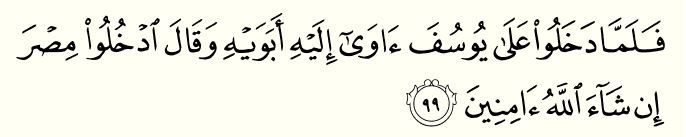 فَلَمَّا دَخَلُوا۟ عَلَىٰ يُوسُفَ ءَاوَىٰٓ إِلَيْهِ أَبَوَيْهِ وَقَالَ ٱدْخُلُوا۟ مِصْرَ
إِن شَآءَ ٱللَّهُ ءَامِنِينَ ٩٩